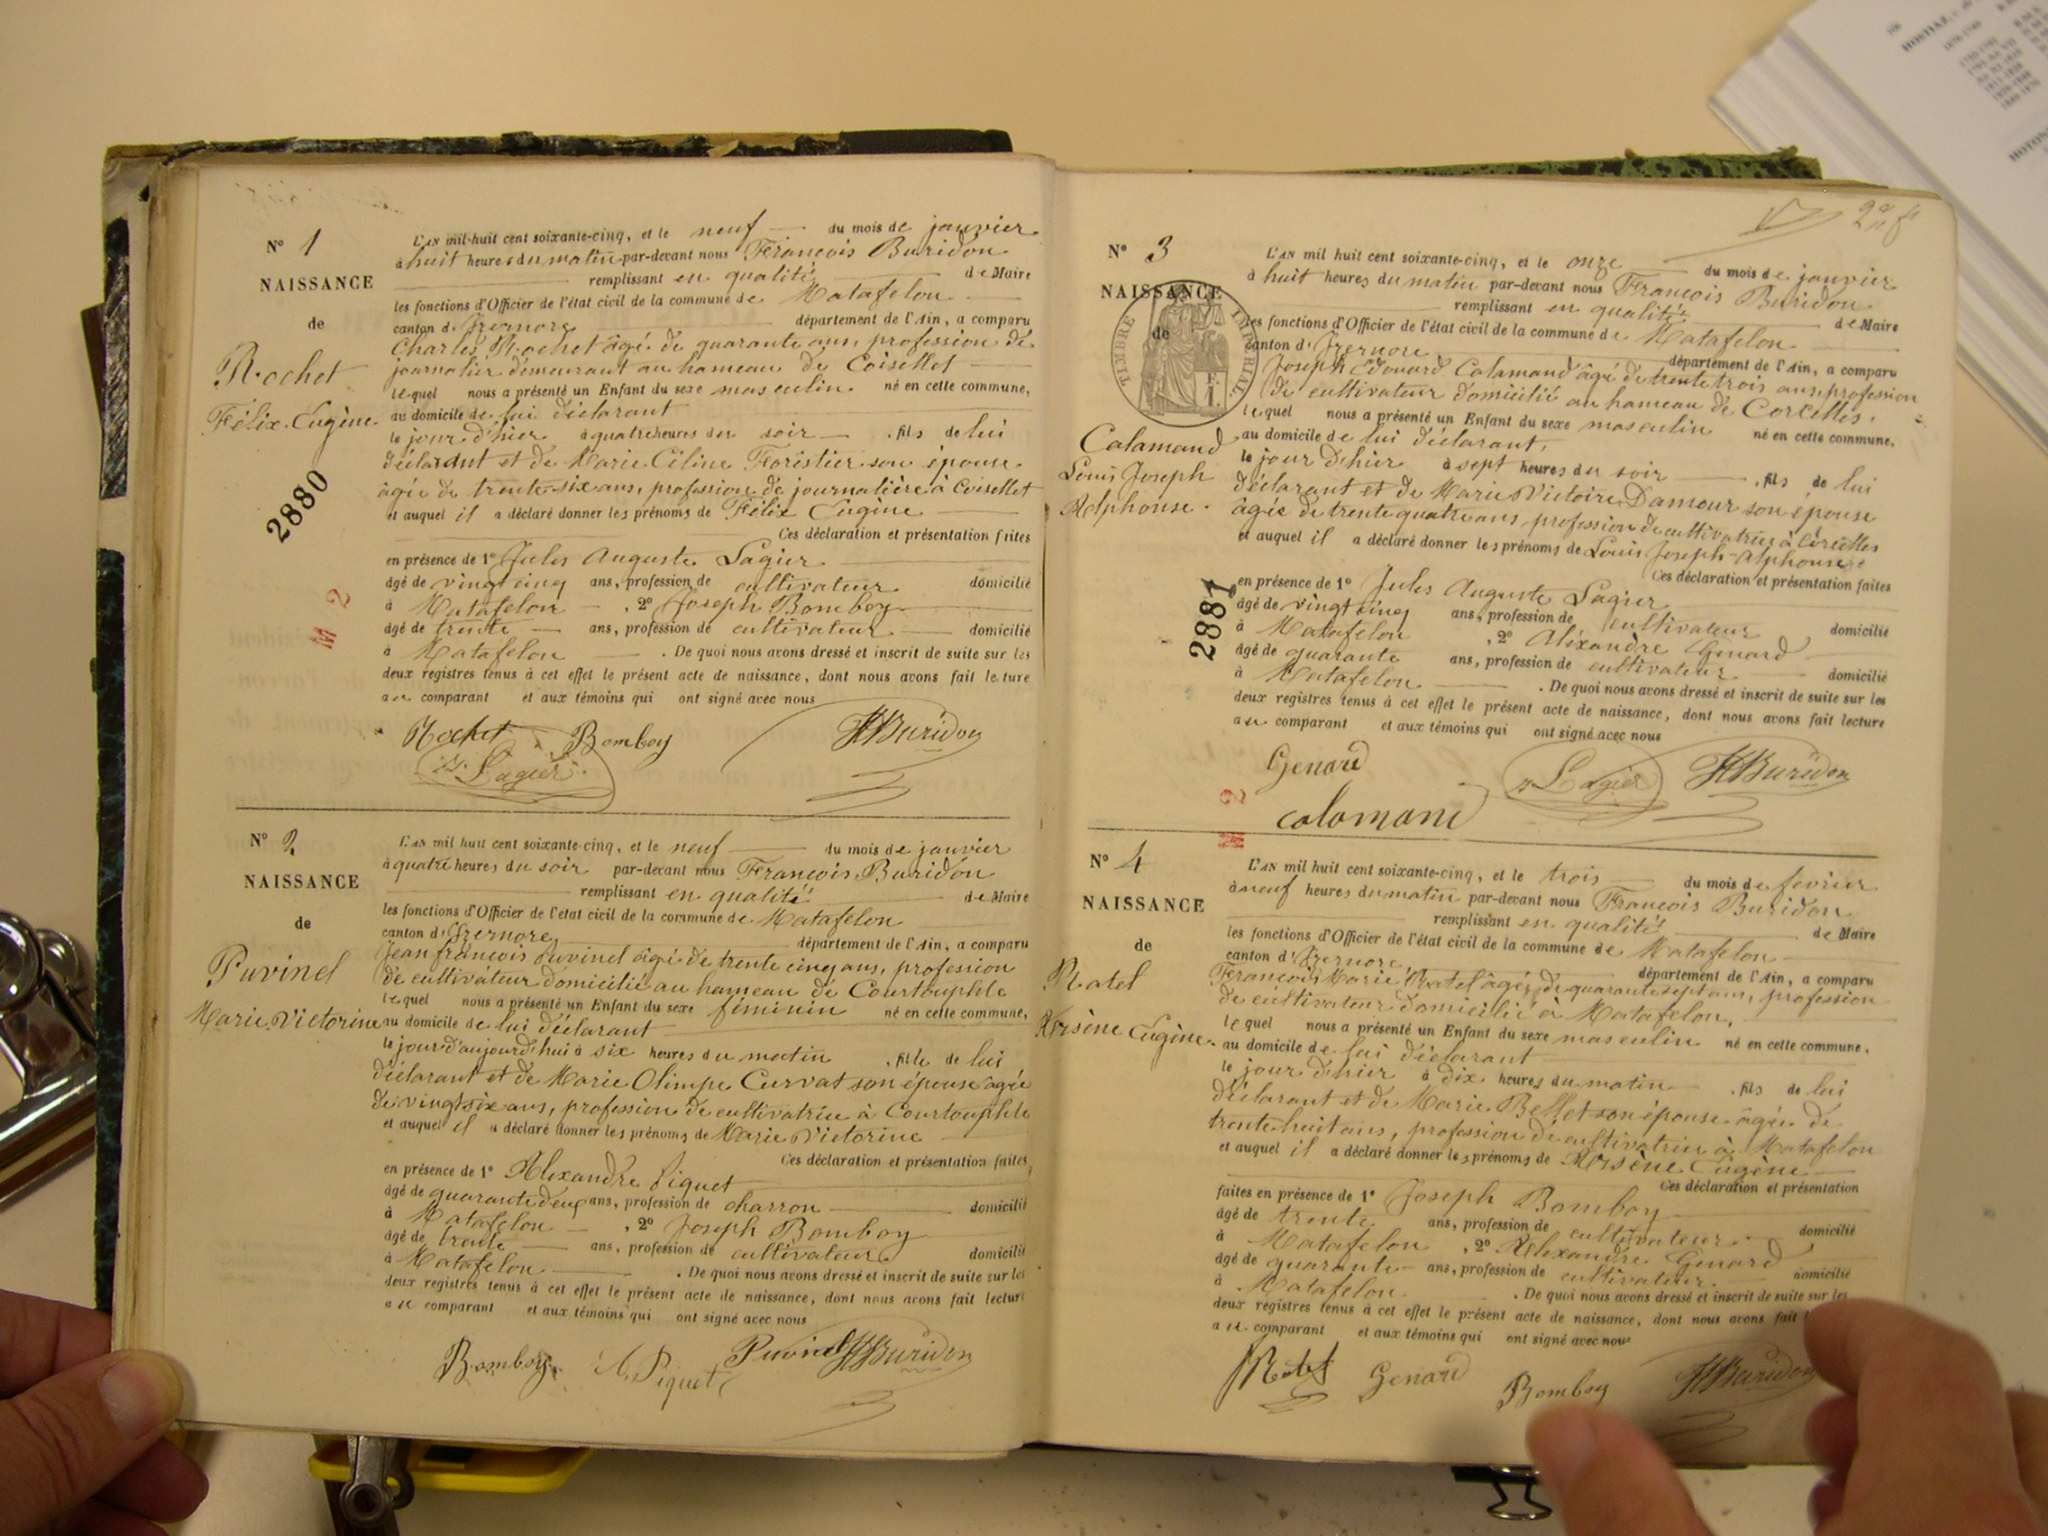 N° 1
NAISSANCE
de
Rochet
Félix Eugène
2880
M 2
L'AN mil huit cent soixante-cinq, et le neuf du mois de janvier
à huit heures du matin par-devant nous François Buridon
remplissant en qualité de Maire
les fonctions d'Officier de l'état civil de la commune de Matafelon
canton d'Izernore département de l'Ain, a comparu
Charles Rochet âgé de quarante ans, profession de
journalier demeurant au hameau de Coisellet
lequel nous a présenté un Enfant du sexe masculin né en cette commune,
au domicile de lui déclarant
le jour d'hier à quatre heures du soir , fils de lui
déclarant et de Marie Céline Forêstier son épouse
âgée de trente-six ans, profession de journalière à Coisellet
et auquel il a déclaré donner les prénoms de Félix Eugène
Ces déclaration et présentation faites
en présence de 1° Jules Auguste Lagier
âgé de vingt cinq ans, profession de cultivateur domicilié
à Matafelon , 2° Joseph Bomboy
âgé de trente ans, profession de cultivateur domicilié
à Matafelon . De quoi nous avons dressé et inscrit de suite sur les
deux registres tenus à cet effet le présent acte de naissance, dont nous avons fait lecture
au comparant et aux témoins qui ont signé avec nous
Rochet Bomboy Buridon
Lagier
N° 2
NAISSANCE
de
Puvinel
Marie Victorine
L'AN mil huit cent soixante-cinq, et le neuf du mois de janvier
à quatre heures du soir par-devant nous François Buridon
remplissant en qualité de Maire
les fonctions d'Officier de l'état civil de la commune de Matafelon
canton d'Izernore département de l'Ain, a comparu
Jean françois Puvinel âgé de trente cinq ans, profession
de cultivateur domicilié au hameau de Courtouphle
lequel nous a présenté un Enfant du sexe féminin né en cette commune,
au domicile de lui déclarant
le jour d'aujourd'hui à six heures du matin , fille de lui
déclarant et de Marie Olimpe Curvat son épouse âgée
de vingt six ans, profession de cultivatrice à Courtouphle
et auquel il a déclaré donner les prénoms de Marie Victorine
Ces déclaration et présentation faites
en présence de 1° Alexandre Piquet
âgé de quarante deux ans, profession de charron domicilié
à Matafelon , 2° Joseph Bomboy
âgé de trente ans, profession de cultivateur domicilié
à Matafelon . De quoi nous avons dressé et inscrit de suite sur les
deux registres tenus à cet effet le présent acte de naissance, dont nous avons fait lecture
au comparant et aux témoins qui ont signé avec nous
Bomboy A. Piquet Puvinel Buridon
N° 3
NAISSANCE
de
TIMBRE IMPERIAL
Calamand
Louis Joseph
Alphonse
2881
M 2
L'AN mil huit cent soixante-cinq, et le onze du mois de janvier
à huit heures du matin par-devant nous François Buridon
remplissant en qualité de Maire
les fonctions d'Officier de l'état civil de la commune de Matafelon
canton d'Izernore département de l'Ain, a comparu
Joseph Edouard Calamand âgé de trente trois ans, profession
de cultivateur domicilié au hameau de Corcelles.
lequel nous a présenté un Enfant du sexe masculin né en cette commune,
au domicile de lui déclarant,
le jour d'hier à sept heures du soir , fils de lui
déclarant et de Marie Victoire Damour son épouse
âgée de trente quatre ans, profession de cultivatrice à Corcelles
et auquel il a déclaré donner les prénoms de Louis Joseph Alphonse
Ces déclaration et présentation faites
en présence de 1° Jules Auguste Lagier
âgé de vingt cinq ans, profession de cultivateur domicilié
à Matafelon , 2° Alexandre Genard
âgé de quarante ans, profession de cultivateur domicilié
à Matafelon . De quoi nous avons dressé et inscrit de suite sur les
deux registres tenus à cet effet le présent acte de naissance, dont nous avons fait lecture
au comparant et aux témoins qui ont signé avec nous
Genard Lagier Buridon
calomand
N° 4
NAISSANCE
de
Ratel
Arsène Eugène.
L'AN mil huit cent soixante-cinq, et le trois du mois de février
à neuf heures du matin par-devant nous François Buridon
remplissant en qualité de Maire
les fonctions d'Officier de l'état civil de la commune de Matafelon
canton d'Izernore département de l'Ain, a comparu
François Marie Ratel âgé de quarante sept ans, profession
de cultivateur domicilié à Matafelon,
lequel nous a présenté un Enfant du sexe masculin né en cette commune,
au domicile de lui déclarant
le jour d'hier à dix heures du matin , fils de lui
déclarant et de Marie Bellet son épouse âgée de
trente huit ans, profession de cultivatrice à Matafelon
et auquel il a déclaré donner les prénoms de Arsène Eugène
Ces déclaration et présentation
faites en présence de 1° Joseph Bomboy
âgé de trente ans, profession de cultivateur domicilié
à Matafelon , 2° Alexandre Genard
âgé de quarante ans, profession de cultivateur domicilié
à Matafelon . De quoi nous avons dressé et inscrit de suite sur les
deux registres tenus à cet effet le présent acte de naissance, dont nous avons fait
au comparant et aux témoins qui ont signé avec nous
Ratel Genard Bomboy Buridon